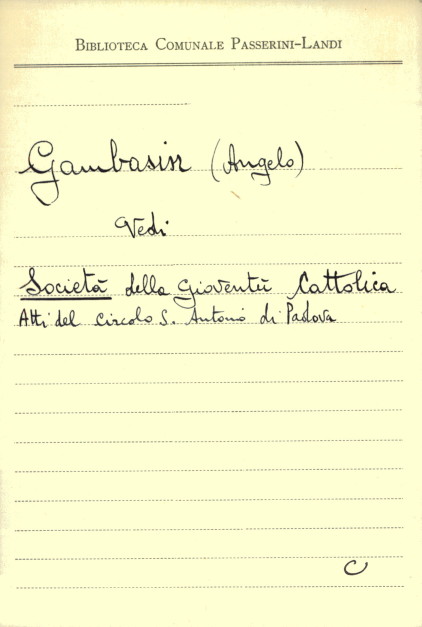 Biblioteca Comunale Passerini-Landi
Gambasin (Angelo)
Vedi
Società della Gioventù Cattolica
Atti del Circolo S. Antonio di Padova
C